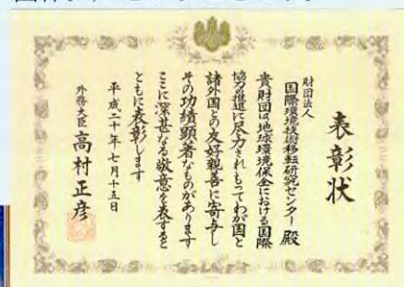 表彰状
財団法人
国際環境技術移転研究センター 殿
貴財団は地球環境保全における国際
協力の推進に尽力されもってわが国と
諸外国との友好親善に寄与し
その功績顕著なものがあります
ここに深甚なる敬意を表すると
ともに表彰します
平成二十年七月十五日
外務大臣 高村正彦